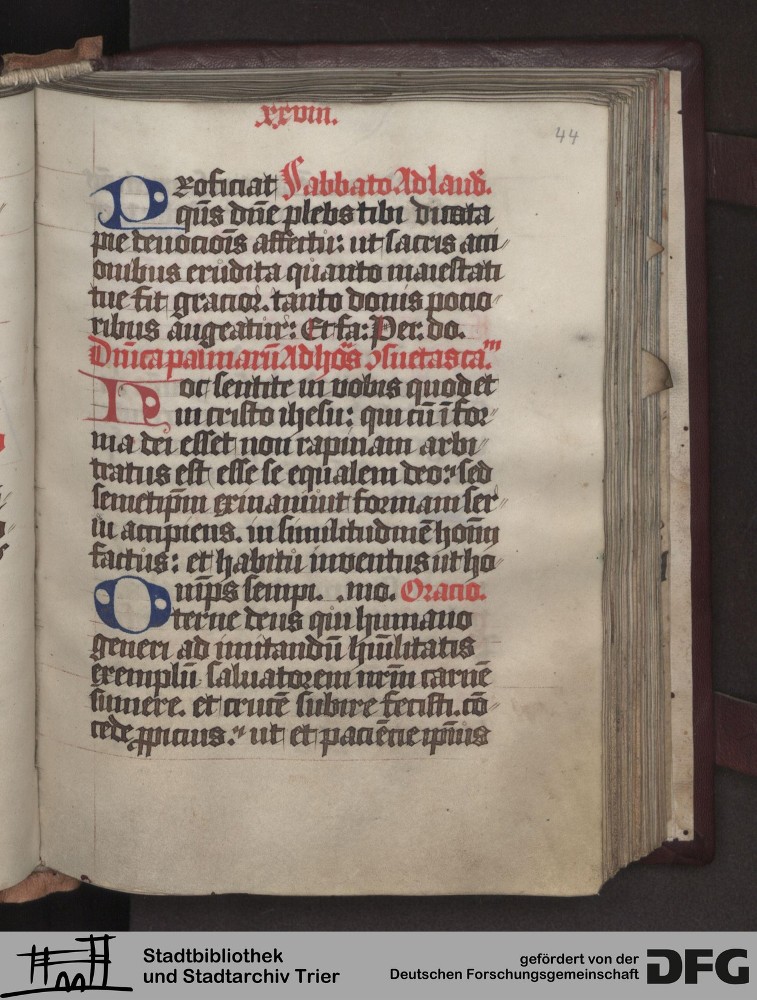 xxviii.
44
Proficiat Sabbato Ad laud̄.
qūs dn̄e plebs tibi dicata
pie deuocioīs affectu: ut sacris acti
onibus erudita quanto maiestati
tue fit gracior. tanto donis pocio
ribus augeatur: Et fa: Per. do.
Dn̄ica palmarū Ad hōs ↄsuetas ca.
Hoc sentite in vobis quod et
in cristo ihesu: qui cū ī for
ma dei esset non rapinam arbi
tratus est esse se equalem deo: sed
semetip̄m exinaniuit formam ser
ui accipiens. in similitudinē homī
factus: et habitu inventus ut ho
Om̄ips sempi. .mo. Oracio.
terne deus qui humano
generi ad imitandū hūilitatis
exemplū saluatorem nr̄m carnē
sumere. et crucē subire fecisti. cō
cede ꝓpicius. ut et paciēcie ip̄ius
Stadtbibliothek
und Stadtarchiv Trier
gefördert von der
Deutschen Forschungsgemeinschaft
DFG